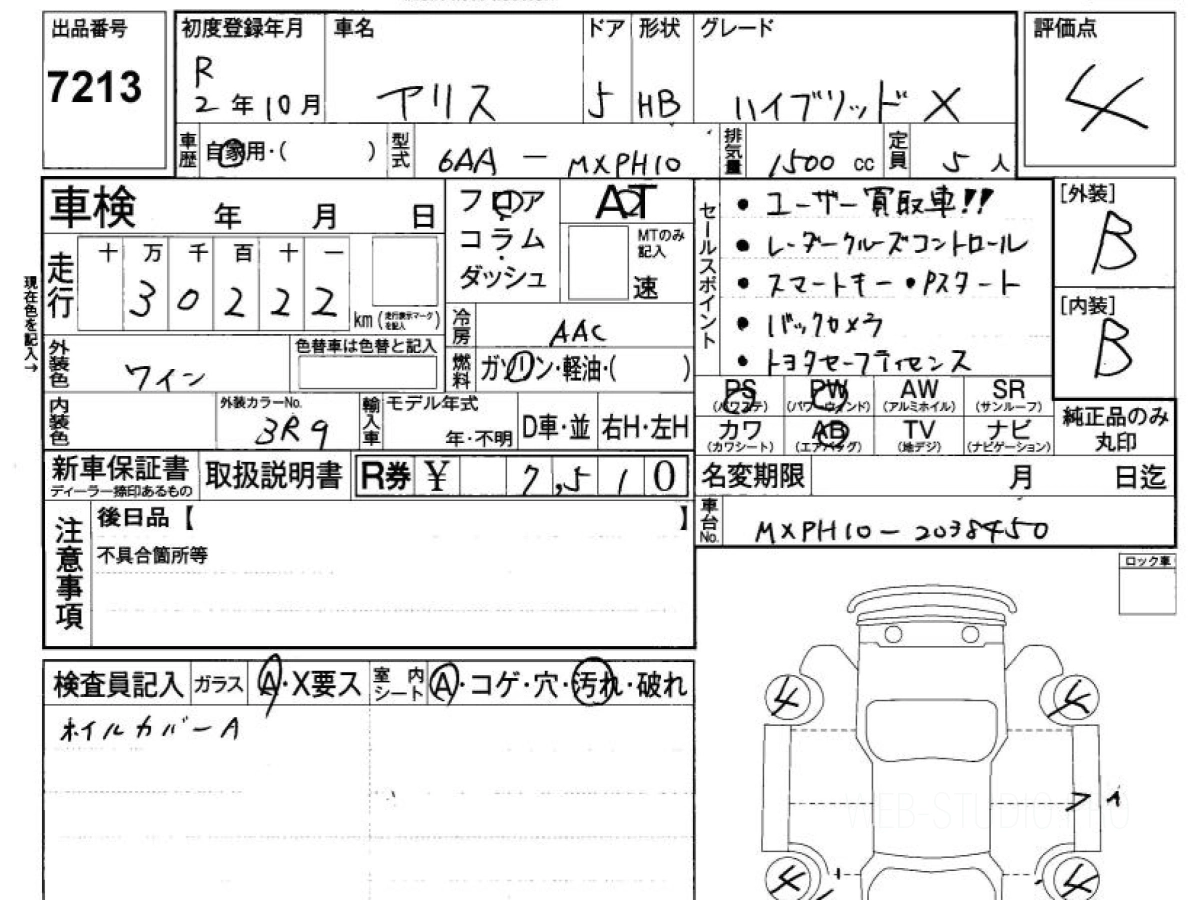 出品番号 初度登録年月 車名 ドア 形状 グレード 評価点
7213 R 2年10月 ヤリス 5 HB ハイブリッド X 4
車歴 自家用・( ) 型式 6AA - MXPH10 排気量 1500 cc 定員 5人
車検 年 月 日 フロア AT セールスポイント ・ユーザー買取車!! [外装]
コラム MTのみ記入 ・レーダークルーズコントロール B
ダッシュ 速 ・スマートキー・Pスタート
走行 十 万 千 百 十 一 ・バックカメラ [内装]
30222 km (走行表示マークを記入) 冷房 AAC ・トヨタセーフティセンス B
現在色を記入→
外装色 ワイン 色替車は色替と記入 燃料 ガソリン・軽油・( )
PS PW AW SR
(パワステ) (パワーウィンド) (アルミホイル) (サンルーフ)
内装色 外装カラーNo. 3R9 輸入車 モデル年式 年・不明 D車・並 右H・左H
カワ AB TV ナビ 純正品のみ丸印
(カワシート) (エアバッグ) (地デジ) (ナビゲーション)
新車保証書 取扱説明書 R券 ¥ 7,510 名変期限 月 日迄
ディーラー捺印あるもの
注意事項 後日品【 】 車台No. MXPH10-2038450
不具合箇所等
ロック車
検査員記入 ガラス A・X要ス 室内シート A・コゲ・穴・汚れ・破れ
ホイルカバーA
4 4
A
WEB-STUDIO.PRO
4 4